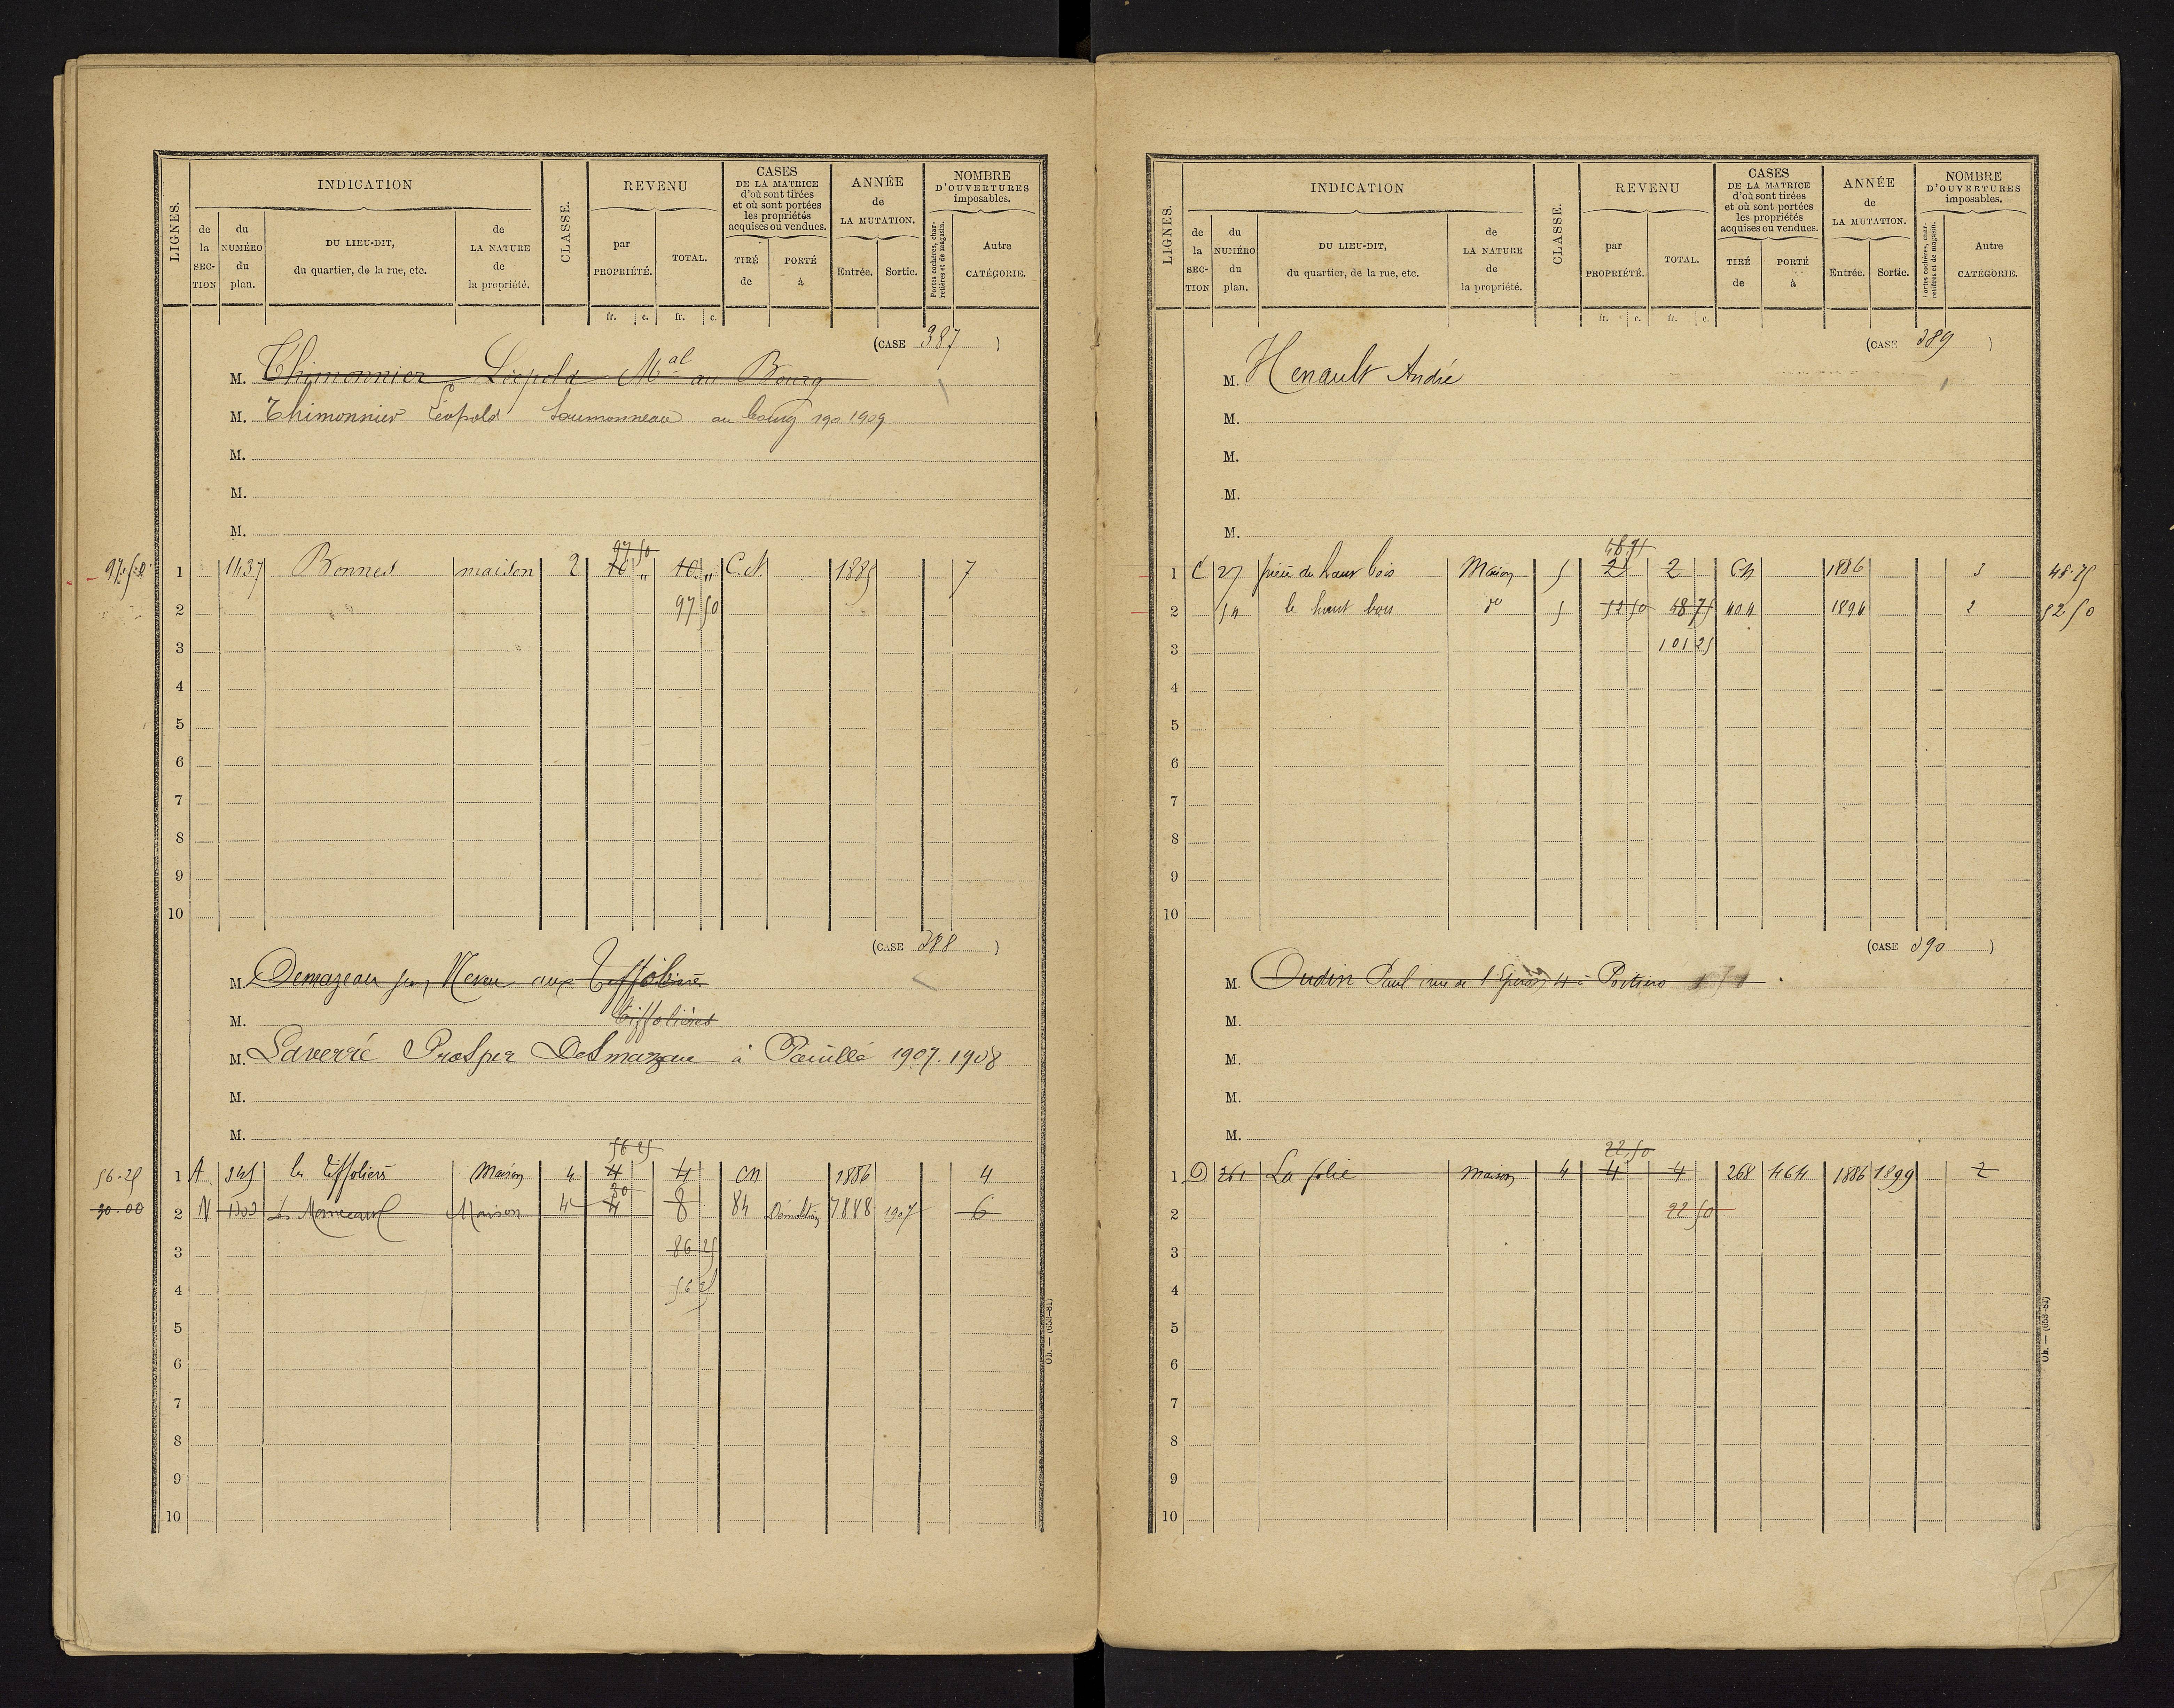 LIGNES. INDICATION CLASSE. REVENU CASES DE LA MATRICE d'où sont tirées et où sont portées les propriétés acquises ou vendues. ANNÉE de LA MUTATION. NOMBRE D'OUVERTURES imposables.
de la SEC-TION du NUMÉRO du plan. DU LIEU-DIT, du quartier, de la rue, etc. de LA NATURE de la propriété. par PROPRIÉTÉ. TOTAL. TIRÉ de PORTÉ à Entrée. Sortie. Portes cochères, charretières et de magasin. Autre CATÉGORIE.
fr. c. fr. c.
(CASE 387 )
M. Thimonnier Léopold Mal au Bourg
M. Thimonnier Léopold au bourg 190 1909
M.
M.
M.
97 50
1 1437 Bonnes maison 2 10 " 10 " C.N. 1885 7
2 97 50
3
4
5
6
7
8
9
10
(CASE 388 )
M. Demazeau aux Tiffolières
M. Tiffolières
M. Laverré Prosper à Pouillé 1907. 1908
M.
M.
56 25
56-25 1 A 345 les Tiffoliers Maison 4 4 4 CN 1886 4
30
30-00 2 N Maison 4 4 8 84 Démolition 1888 1907 6
3 86 25
4 56 25
5
6
7
8
9
10
Ob. — (653-81)
LIGNES. INDICATION CLASSE. REVENU CASES DE LA MATRICE d'où sont tirées et où sont portées les propriétés acquises ou vendues. ANNÉE de LA MUTATION. NOMBRE D'OUVERTURES imposables.
de la SEC-TION du NUMÉRO du plan. DU LIEU-DIT, du quartier, de la rue, etc. de LA NATURE de la propriété. par PROPRIÉTÉ. TOTAL. TIRÉ de PORTÉ à Entrée. Sortie. Portes cochères, charretières et de magasin. Autre CATÉGORIE.
fr. c. fr. c.
(CASE 389 )
M. Henault André
M.
M.
M.
M.
1 C 27 du haut bois Maison 5 2 2 CN 1886 3 48-75
2 54 le haut bois do 5 52 50 48 75 404 1894 2 52 50
3 101 25
4
5
6
7
8
9
10
(CASE 390 )
M. Oudin Paul rue de 4 à Poitiers
M.
M.
M.
M.
22,50
1 D 261 La folie maison 4 4 4 268 464 1886 1899 2
2 22 50
3
4
5
6
7
8
9
10
Ob. — (653-81)